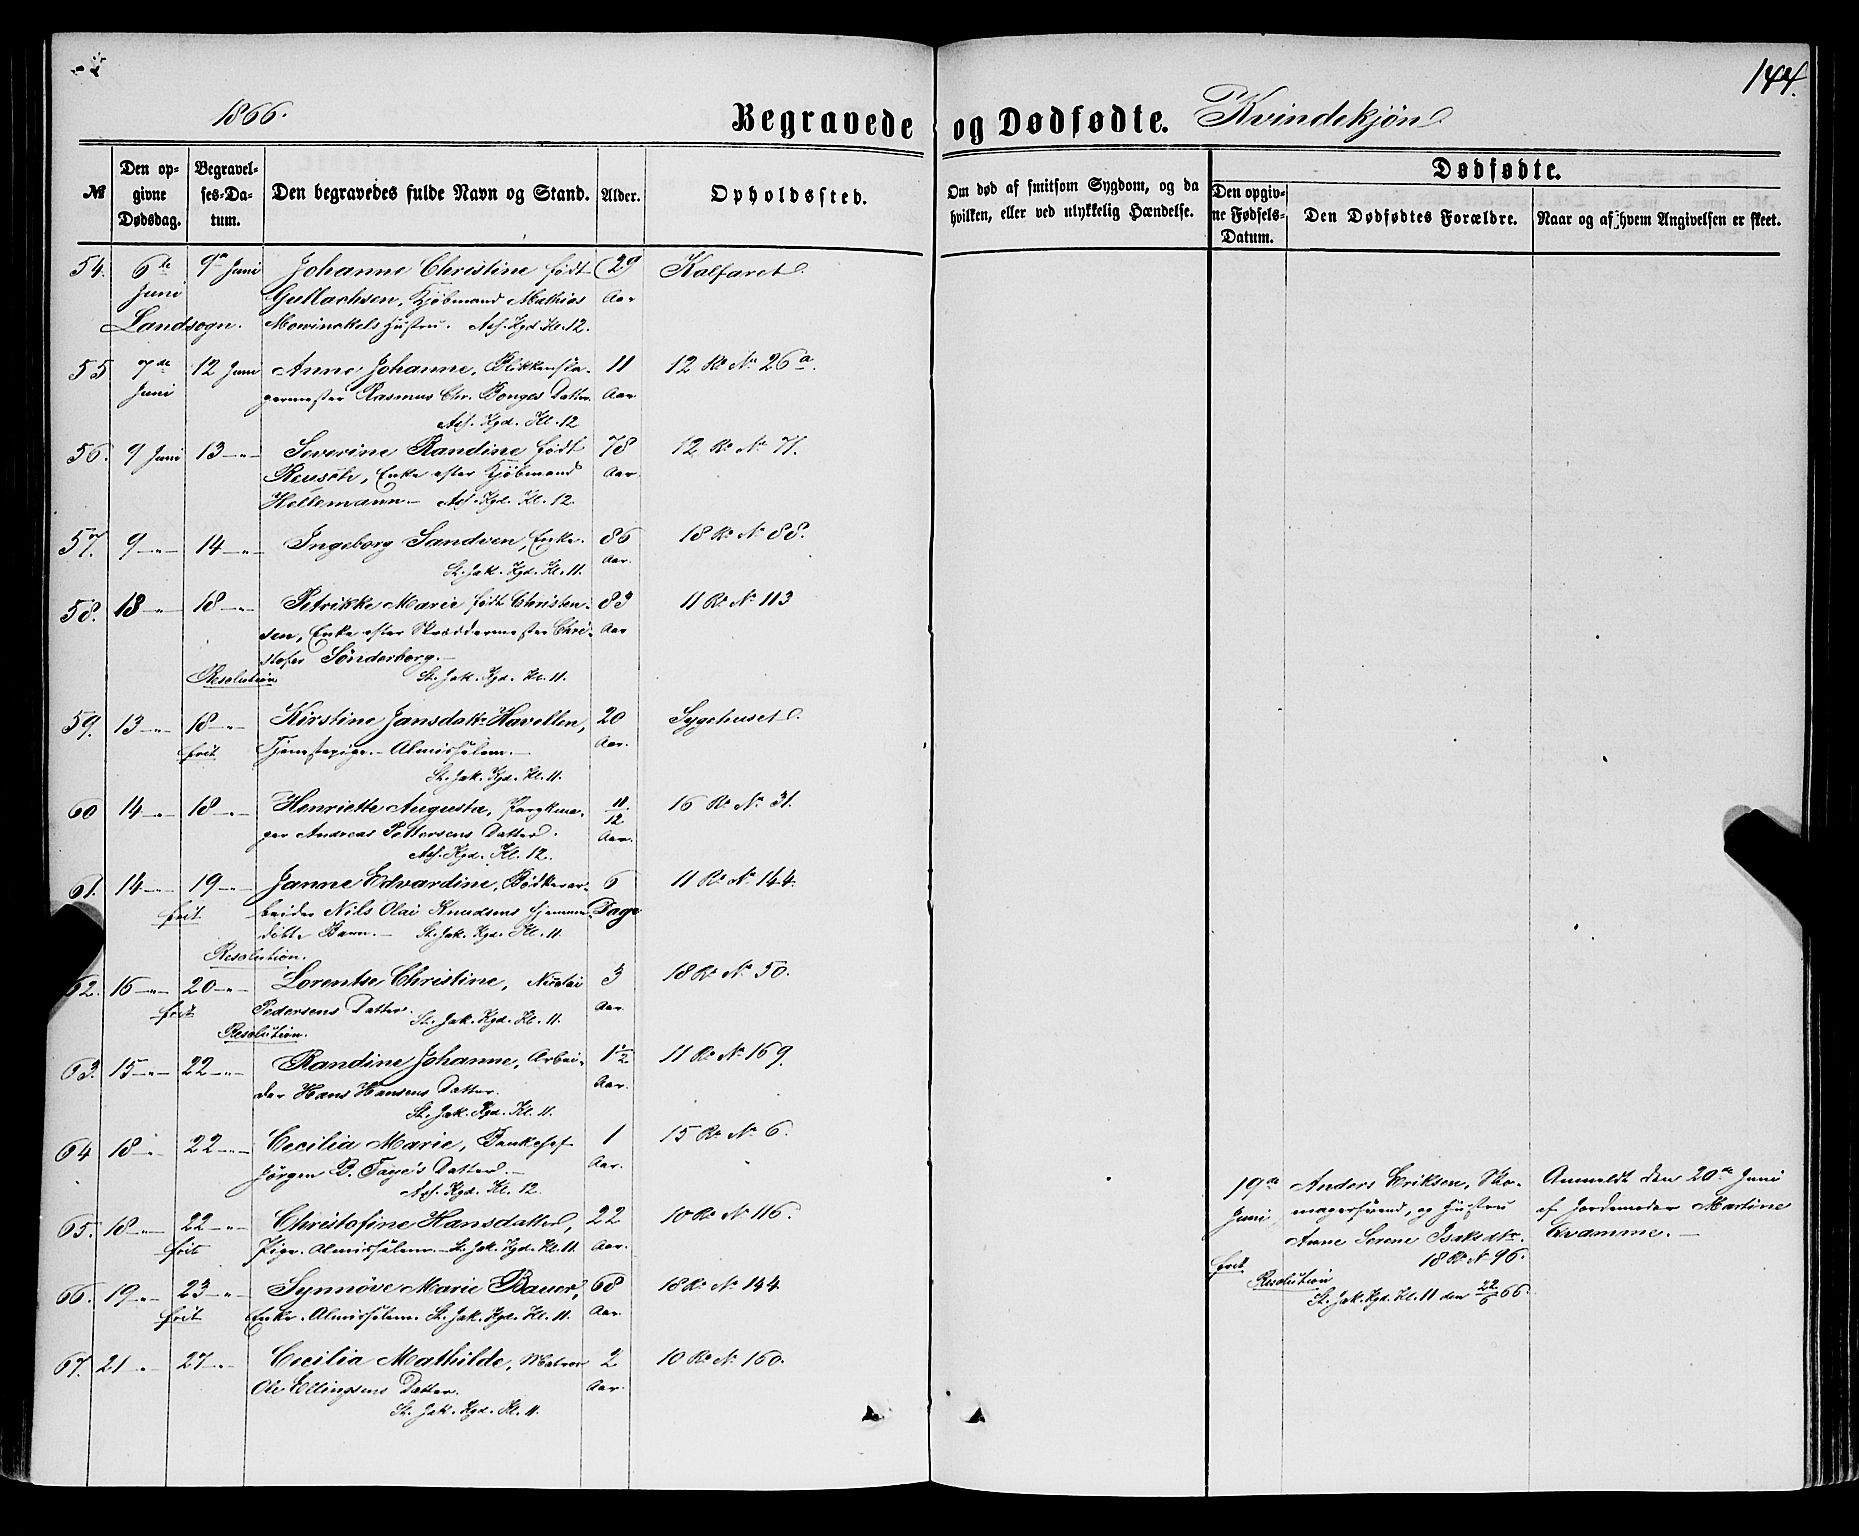 144.
1866.
Begravede og Dødfødte. Kvindekjøn
№
Den opgivne Dødsdag.
Begravelses-Datum.
Den begravedes fulde Navn og Stand.
Alder.
Opholdssted.
Om død af smitsom Sygdom, og da
hvilken, eller ved ulykkelig Hændelse.
Dødfødte.
Den opgivne Fødsels-Datum.
Den Dødfødtes Forældre.
Naar og af hvem Angivelsen er skeet.
54. 6te Juni 9de Juni Johanne Christine født 29 Aar Kalfaret
Gullachsen, Kjøbmand Mathias
Landsogn. Mowinckels Hustru. Ass. Kgd. Kl. 12.
55 7de Juni 12 Juni Anne Johanne, Blikkensla- 11 Aar 12 R. No 26a.
germester Rasmus Chr. Bonges Datter.
Ass. Kgd. Kl. 12
56. 9 Juni 13 -"- Severine Randine født 78 Aar. 12 R. No 71.
Reusch, Enke efter Kjøbmand
Hellemann. - Ass. Kgd. Kl. 12.
57. 9 -"- 14 -"- Ingeborg Sandven, Enke. 86 Aar. 18 R. No 88.
St. Jak. Kgd. Kl. 11.
58. 13 " 18 -"- Petrikke Marie født Christen- 83 Aar 11 R. No 113
sen, Enke efter Skræddermester Chri-
stofer Sønderborg. -
Resolution St. Jak. Kgd. Kl. 11.
59. 13 -"- 18 -"- Kirstine Jansdatr Havellen, 20 Aar. Sygehuset.
frit Tjenestepige. - Almisselem. -
St. Jak. Kgd. Kl. 11.
60 14 -"- 18 -"- Henriette Augusta, 11/12 Aar. 16 R. No 31.
ger Andreas Pettersens Datter.
Ass. Kgd. Kl. 12.
61. 14 -"- 19 -"- Janne Edvardine, Bødkerar- 6 Dage 11 R. No 144.
frit beider Nils Olai Knudsens hjemme-
døbte Barn. - St. Jak. Kgd. Kl. 11.
Resolution.
62. 16 -"- 20 -"- Lorentse Christine, Nicolai 3 Aar. 18 R. No 50.
frit Pedersens Datter. St. Jak. Kgd. Kl. 11.
Resolution.
63. 15 -"- 22 -"- Randine Johanne, Arbei- 1 1/2 Aar. 11 R. No 169.
der Hans Hansens Datter.
St. Jak. Kgd. Kl. 11.
64 18 " 22 -"- Cecilia Marie, Bankchef 1 Aar. 15 R. No 6.
Jørgen B. Faye's Datter. -
Ass. Kgd. Kl. 12.
65. 18 -"- 22 -"- Christofine Hansdatter, 22 Aar. 10 R. No 116.
frit Pige. Almisselem. - St. Jak. Kgd. Kl. 11.
66. 19 -"- 23 " Synnøve Marie Bauer, 68 Aar. 18 R. No 144
frit Enke. Almisselem. St. Jak. Kgd. Kl. 11.
67. 21 " 27 -"- Cecilia Mathilde, Matros 2 Aar. 10 R. No 160.
Ole Ellingsens Datter.
St. Jak. Kgd. Kl. 11.
19de Juni Anders Eriksen, Sko-
magersvend, og Hustru
Anne Serene Isaksdtr.
18 R. N 96.
frit Resolution
St. Jak. Kgd. Kl. 11 den 22/6 66.
Anmeldt den 20de Juni
af Jordemoder Martine
Kvamme. -